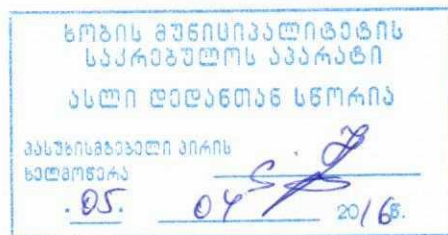 ხობის მუნიციპალიტეტის
საკრებულოს აპარატი
ასლი დედანთან სწორია
პასუხისმგებელი პირის
ხელმოწერა
. 05. 04 2016წ.